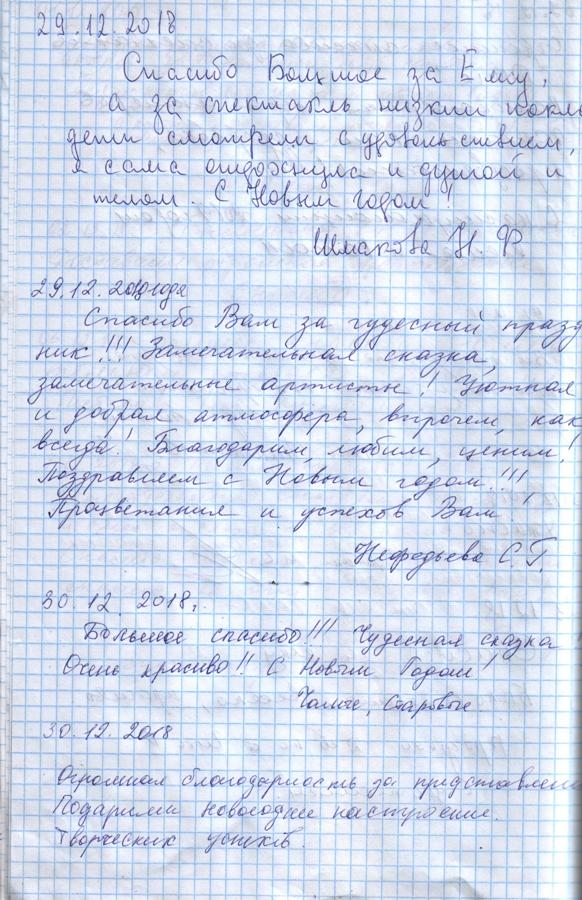 29.12.2018
Спасибо Большое за Ёлку,
а за спектакль низкий покл
дети смотрели с удовольствием,
я сама отдохнула и душой и
телом. С Новым годом!
Шмакова Н. Ф
29.12. года
Спасибо Вам за чудесный празд
ник!!! Замечательная сказка,
замечательные артисты! Уютная
и добрая атмосфера, впрочем, как
всегда! Благодарим, любим, ценим!
Поздравляем с Новым годом!!!
Процветания и успехов Вам!
Нефедьева С.Г.
30.12. 2018г.
Большое спасибо!!! Чудесная сказка
Очень красиво!! С Новым Годом!
30.12.2018
Огромная благодарность за представлени
Подарили новогоднее настроение.
Творческих успехів.